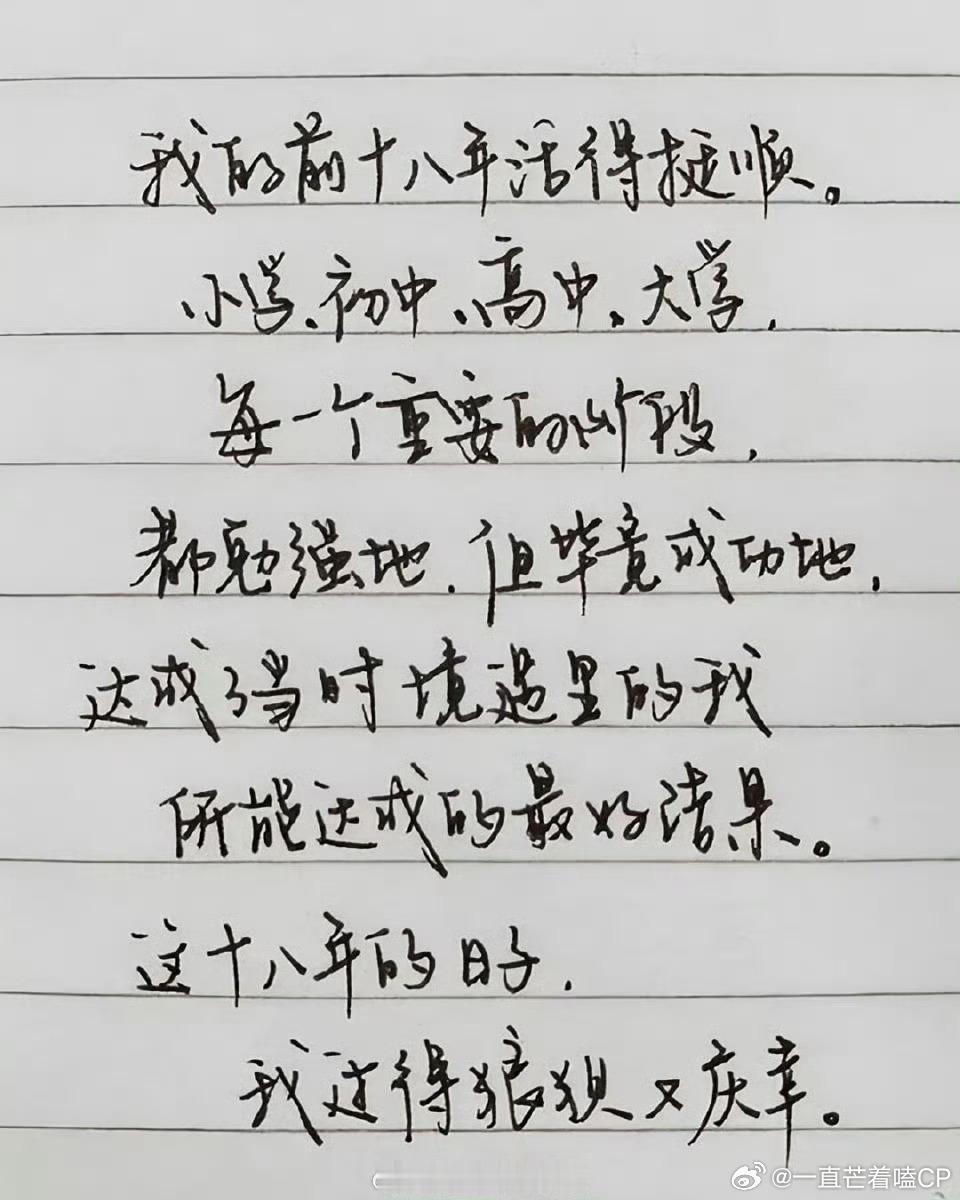 我的前十八年活得挺顺。
小学、初中、高中、大学，
每一个重要的阶段，
都勉强地，但毕竟成功地，
达成当时境遇里的我
所能达成的最好结果。
这十八年的日子，
我过得狼狈又庆幸。
@一直芒着嗑CP